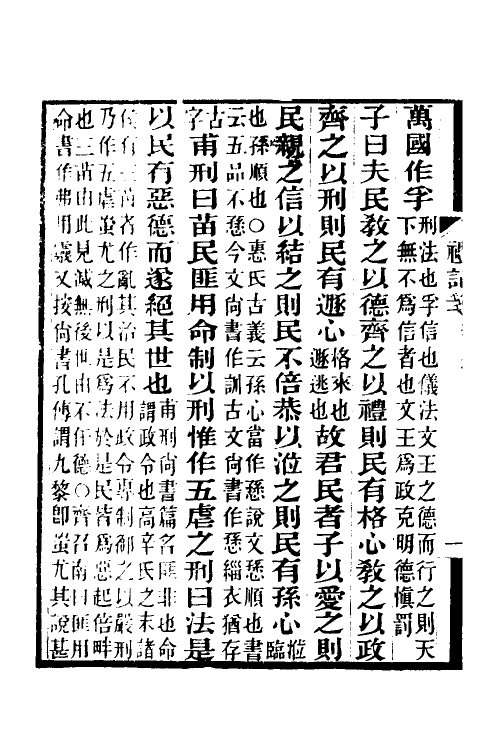 萬國作孚刑法也孚信也儀法文王之德而行之則天
下無不為信者也文王為政克明德慎罰
子曰夫民教之以德齊之以禮則民有格心教之以政
齊之以刑則民有遯心格來也
遯逃也故君民者子以愛之則
民親之信以結之則民不倍恭以涖之則民有孫心涖臨
也孫順也○惠氏古義云孫心當作愻說文愻順也書
云五品不愻今文尚書作訓古文尚書作愻緇衣猶存
古
字甫刑曰苗民匪用命制以刑惟作五虐之刑曰法是
以民有惡德而遂絕其世也甫刑尚書篇名匪非也命
謂政令也高辛氏之末諸
侯有三苗者作亂其治民不用政令專制御之以嚴刑
乃作五虐蚩尤之刑以是為法於是民皆為惡起倍畔
也三苗由此見滅無後世由不任德○齊召南曰匪用
命書作弗用靈又按尚書孔傳謂九黎即蚩尤其說甚
禮記